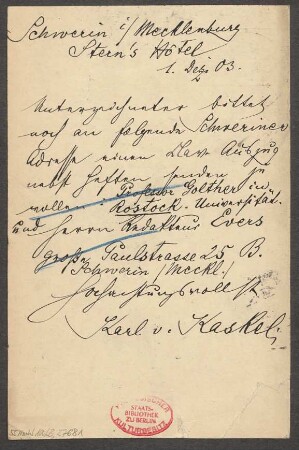 Schwerin i/Mecklenburg
Stern's Hôtel
1. Dez. 03.
Unterzeichneter bittet
noch an folgende Schweriner
Adresse einen Klav. Auszug
nebst Heften senden zu
wollen: Professor Golther in
Rostock. Universität.
und Herrn Redakteur Evers
große Paulstrasse 25 B.
Schwerin /Meckl./
Hochachtungsvollst
Karl v. Kaskel.
STAATS-
BIBLIOTHEK
ZU BERLIN
KULTURBESITZ